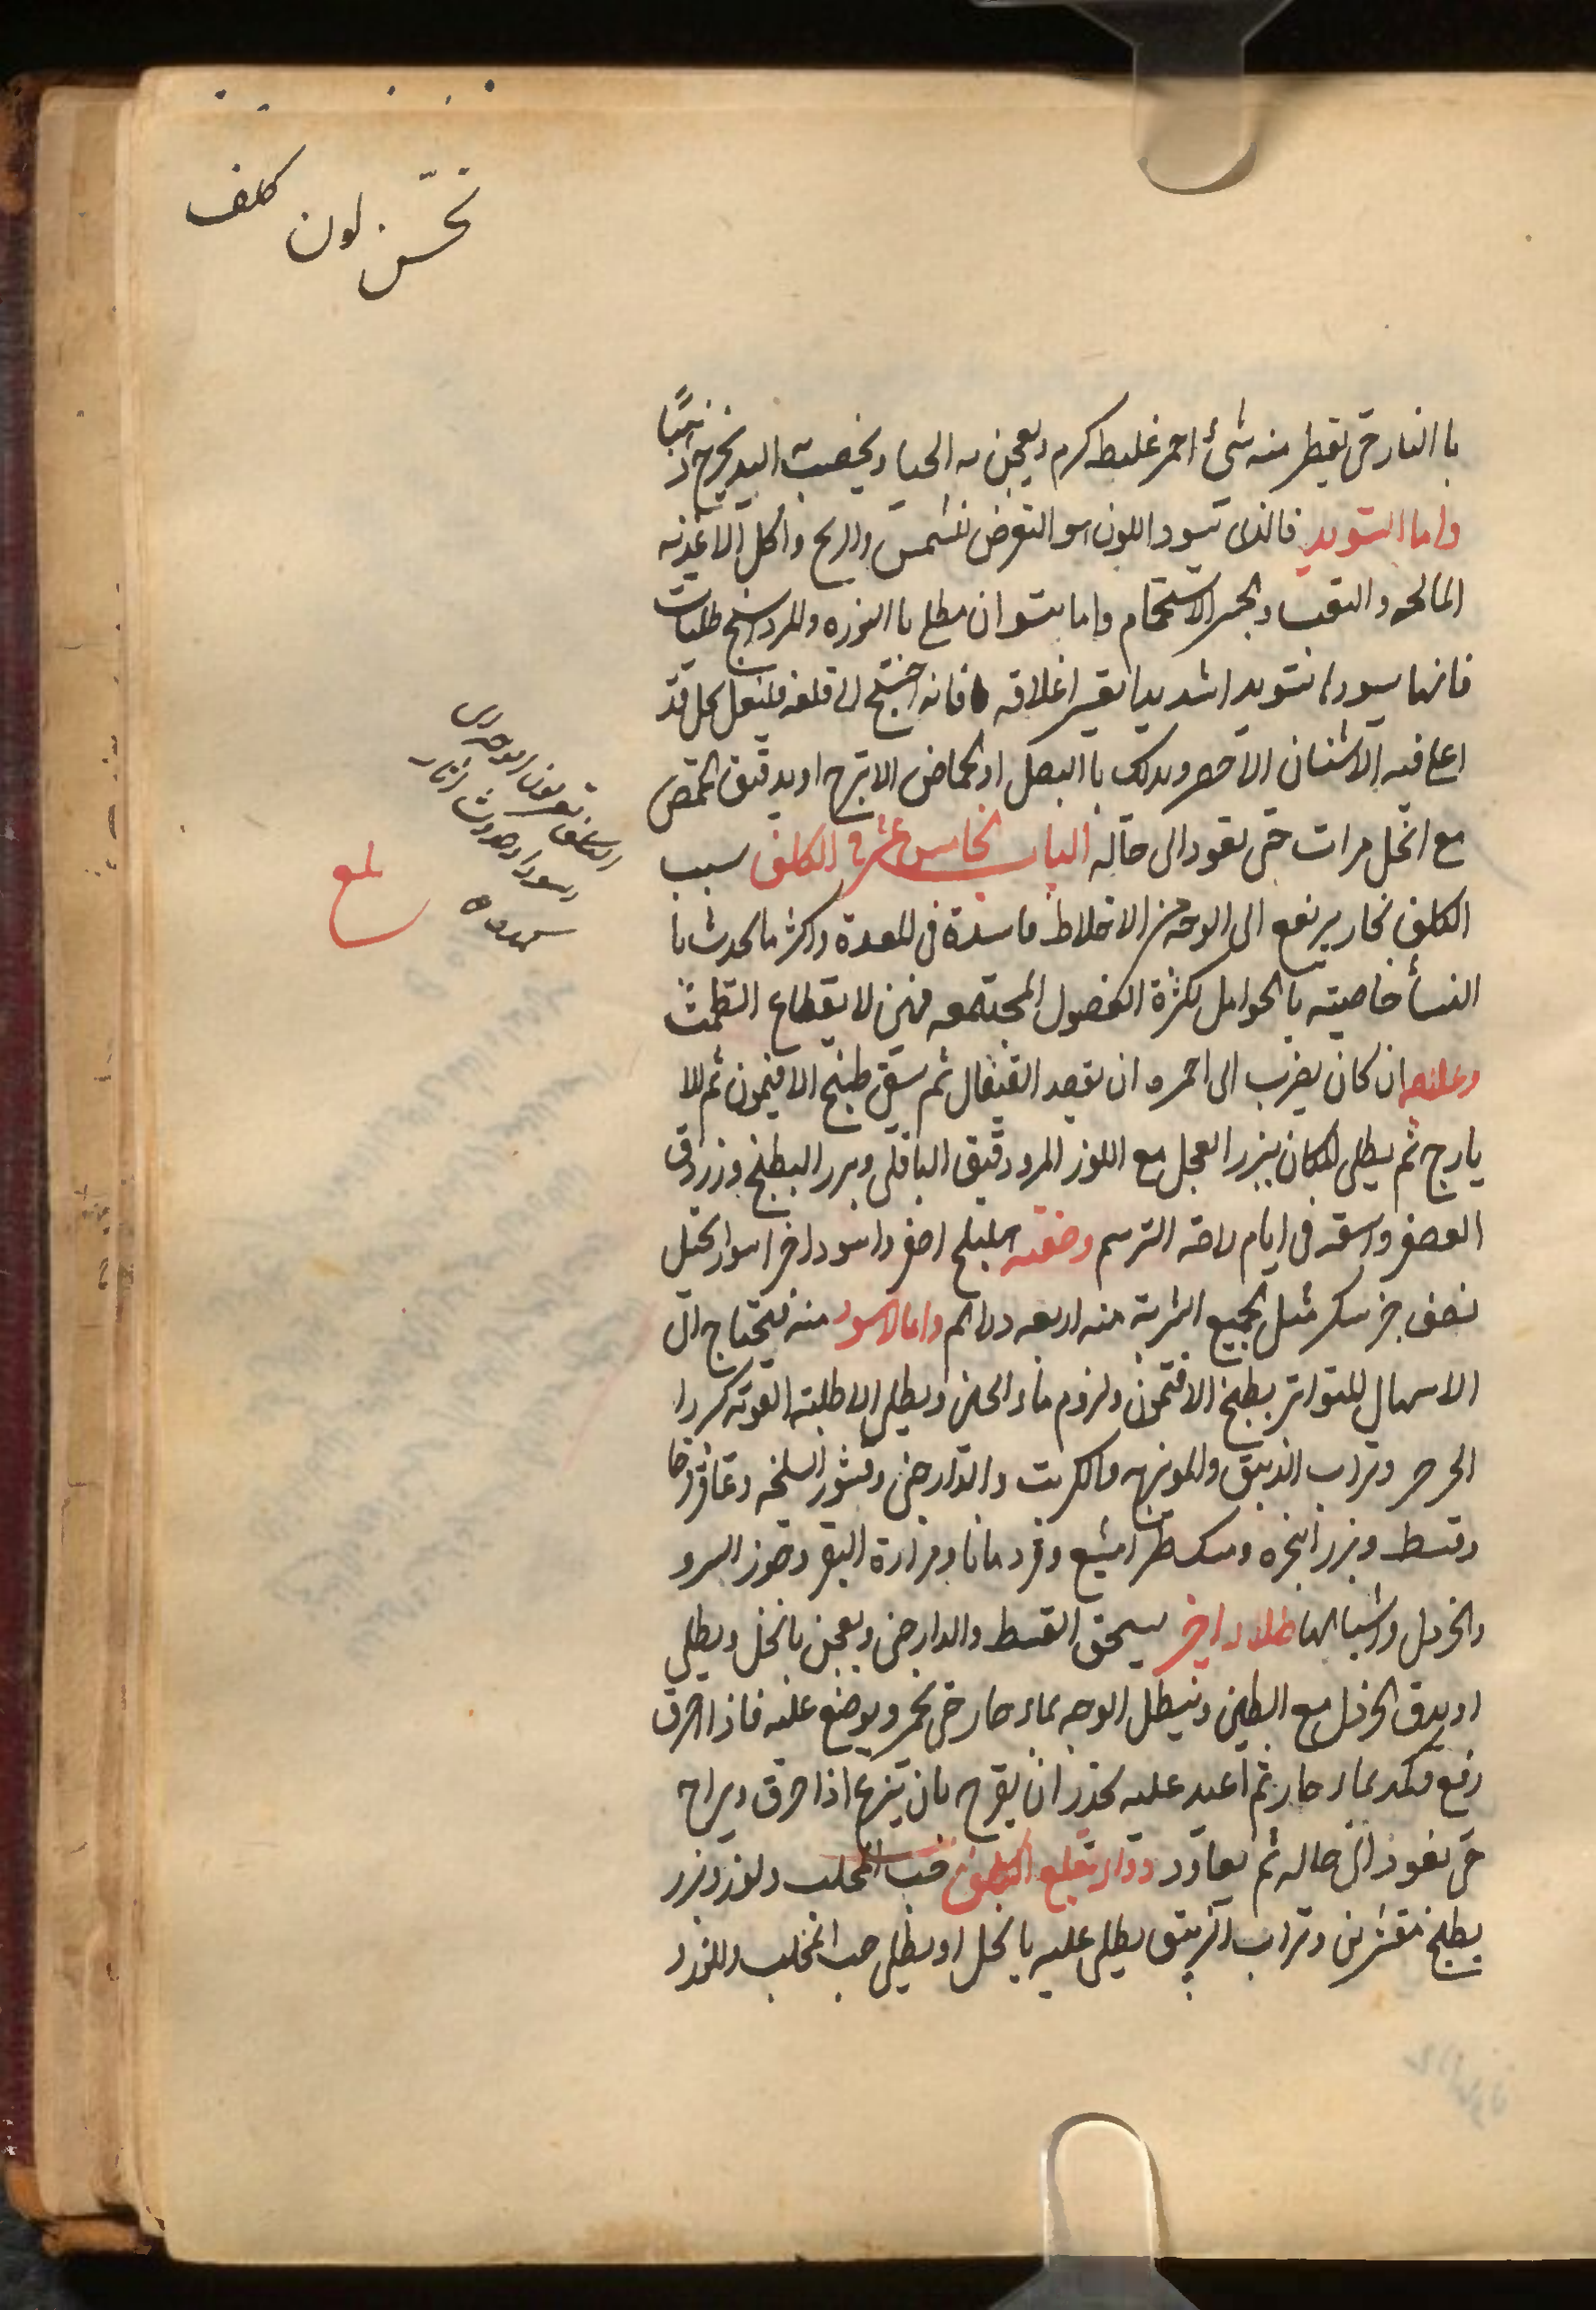 تحسّن لون كلف
با النار حتى يقطر منه شئ احمر غليظ كرم ويعجن به الحنا ويخضب اليد يخرج
واما التسويد فالذى يسود اللون هو التعرض للشمس والريح واكل الاغذيه
المالحه والتعب وهجر الاستحمام واما يسود ان يطلى با النوره والمرداسنج طليات
فانها يسود تسويدا شديدا يعسر اغلاقه فانه احتيج الى قلعه فليغل بخل قد
اغلى فيه الاشنان الاخضر ويدلك با البصل او بحماض الاترج او بدقيق الحمص
مع الخل مرات حتى يعود الى حاله الباب الخامس عشر فى الكلف سبب
الكلف بخار يرتفع الى الوجه من الاخلاط فاسدة فى المعدة واكثر ما يحدث با
النسأ خاصيته با الحوامل لكثرة الفضول المجتمعه فيهن لانقطاع الطمث
وعلاجه ان كان يضرب الى الحمره ان يفصد القيفال ثم يسقى طبيخ الافتيمون ثم للا
يارج ثم يطلى المكان ببزر الفجل مع اللوز المر ودقيق الباقلى وبزر البطيخ وزردق
العصفر واسقه فى ايام راحه الترسم وصفته هليلج اصفر واسود اخر اسود بختل
نصف جز سكر مثل الجميع الشربة منه اربعه دراهم واما الاسود منه فيحتاج الى
الاسهال المتواتر بطبخ الافتيمون ولزوم ماء الجبن ويطلى الاطليه القويه كزر
الجرجر وتراب الذيبق والمويزه والكربت والدارصنى وقشور السلخه وعاقرقرحا
وقسط وبزر انجره ومسكطرامشيع وقردمانا ومرارة البقر وجوز السرو
والخردل واشباهها طلاء اخر يسحق القسط والدارصنى ويعجن بالخل ويطلى
او يدق الخردل مع الطين وينطل الوجه بماء حار حتى يحمر ويوضع عليه فاذا احرق
رفع وكمد بماء حار ثم اعيد عليه يحذر ان يقرح بان ينزع اذا احرق ويراح
حتى يعود الى حاله ثم يعاود دواء يقلع الكلف حب المحلب ولوز وبزر
بطيخ مقشرين وتراب الزيبق يطلى عليه بالخل او يطلى حب المحلب واللوز